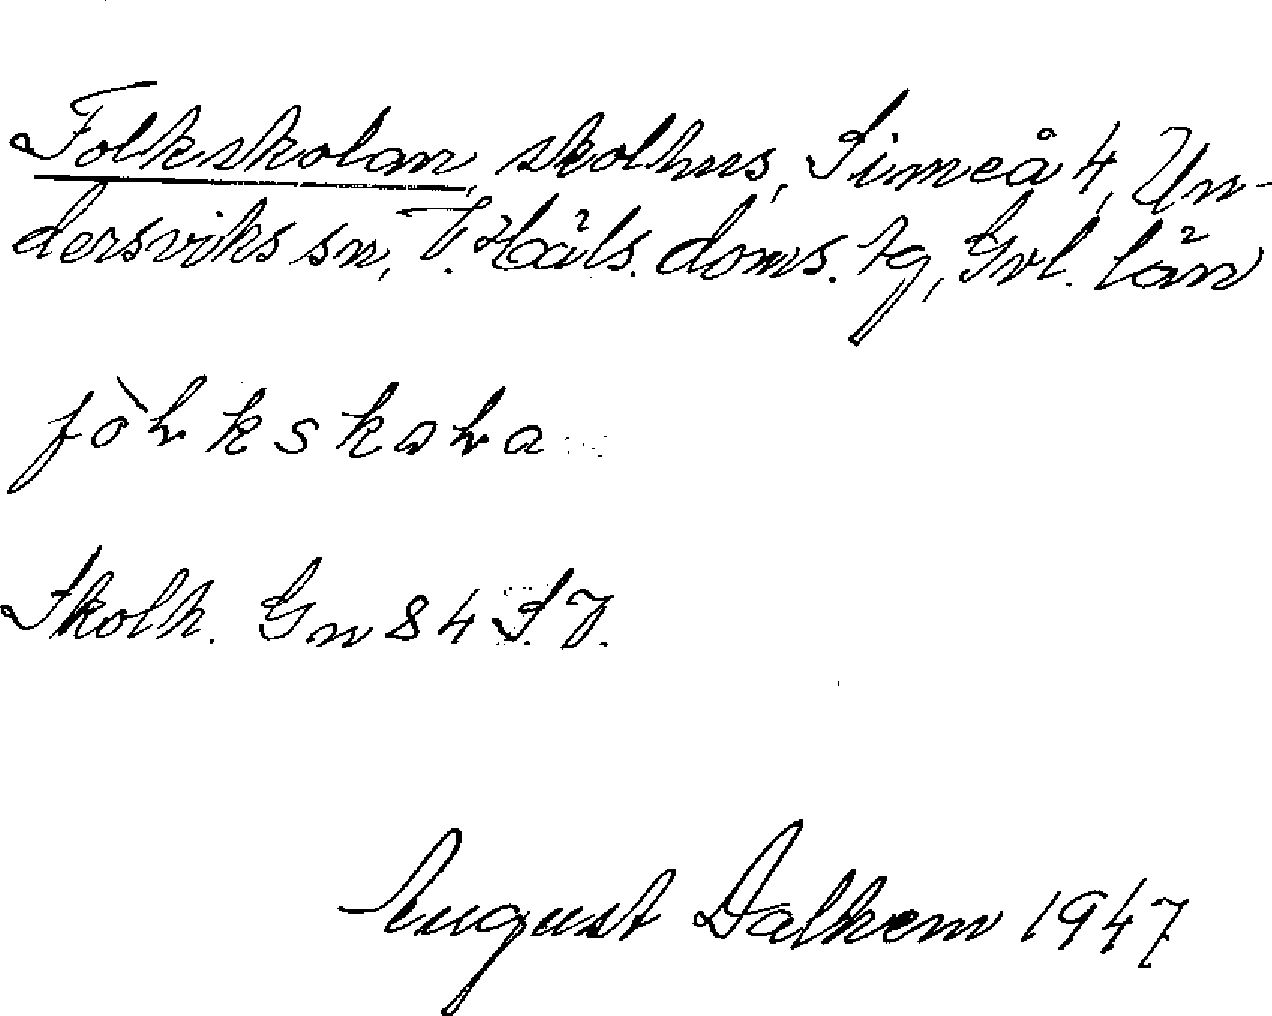 Folkskolan, skolhus, Simeå 4, Un-
dersviks sn, V. Häls. doms. tg, Gvl. län
Skolh. Gn 84 S.V.
August Dalhem 1947